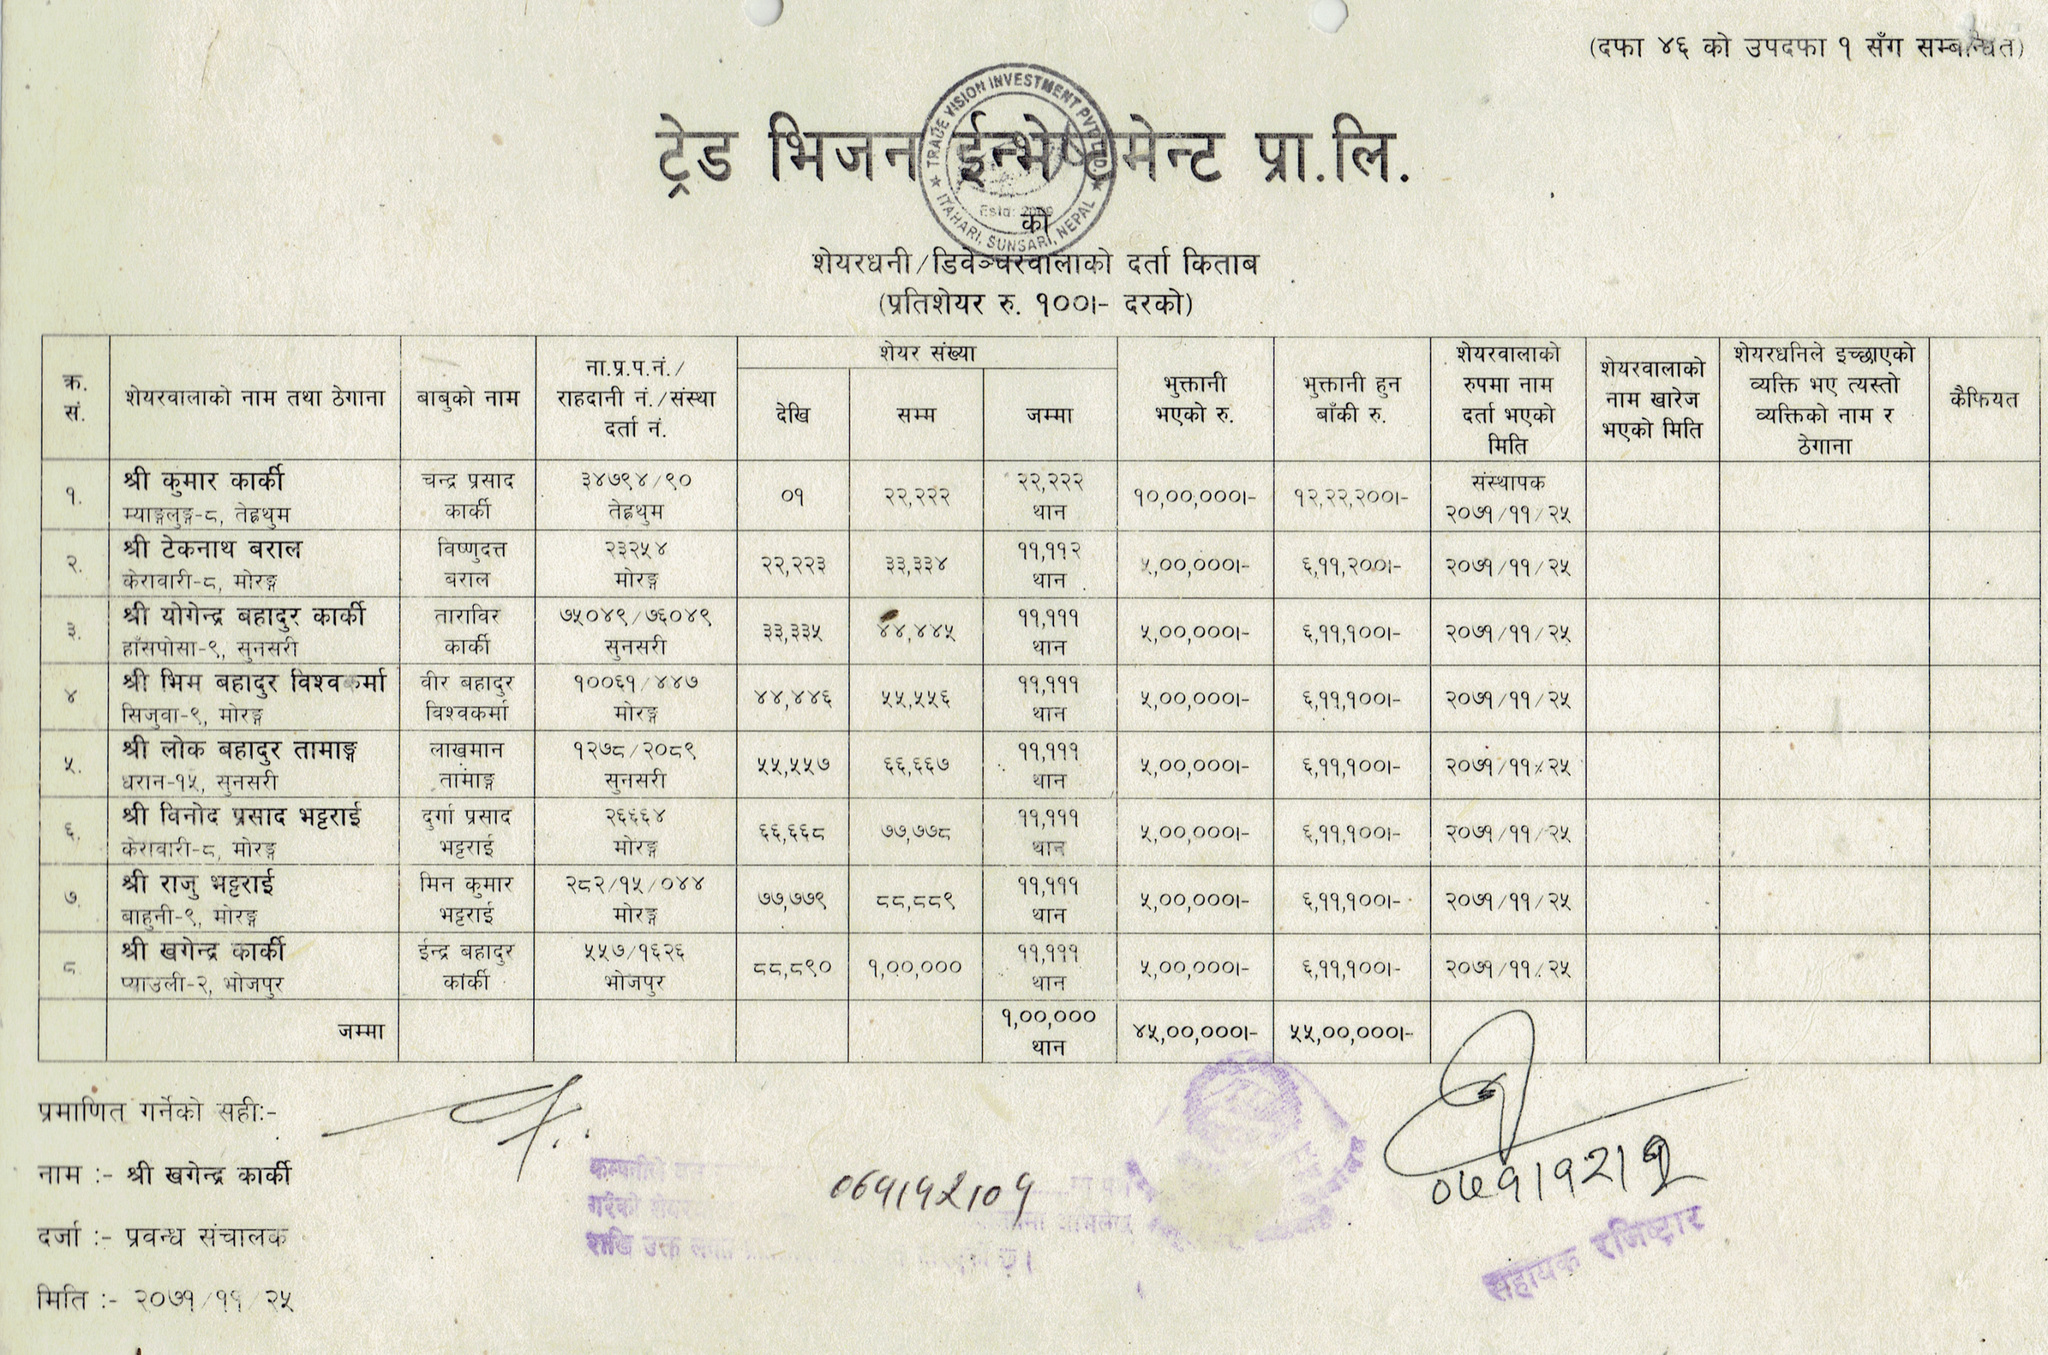 (दफा ४६ को उपदफा १ सँग सम्बन्धित)
TRADE VISION INVESTMENT PVT. LTD.
ट्रेड भिजन ईन्भेष्टमेन्ट प्रा.लि.
Estd: 2009
ITAHARI, SUNSARI, NEPAL
को
शेयरधनी/डिवेञ्चरवालाको दर्ता किताब
(प्रतिशेयर रु. १००।- दरको)
क्र. सं. शेयरवालाको नाम तथा ठेगाना बाबुको नाम ना.प्र.प.नं./ राहदानी नं./संस्था दर्ता नं. शेयर संख्या देखि सम्म जम्मा भुक्तानी भएको रु. भुक्तानी हुन बाँकी रु. शेयरवालाको रुपमा नाम दर्ता भएको मिति शेयरवालाको नाम खारेज भएको मिति शेयरधनिले इच्छाएको व्यक्ति भए त्यस्तो व्यक्तिको नाम र ठेगाना कैफियत
१. श्री कुमार कार्की म्याङ्गलुङ्ग-८, तेह्रथुम चन्द्र प्रसाद कार्की ३४७९४/९० तेह्रथुम ०१ २२,२२२ २२,२२२ थान १०,००,०००।- १२,२२,२००।- संस्थापक २०७१/११/२५
२. श्री टेकनाथ बराल केरावारी-८, मोरङ्ग विष्णुदत्त बराल २३२५४ मोरङ्ग २२,२२३ ३३,३३४ ११,११२ थान ५,००,०००।- ६,११,२००।- २०७१/११/२५
३. श्री योगेन्द्र बहादुर कार्की हाँसपोसा-९, सुनसरी ताराविर कार्की ७५०४९/७६०४९ सुनसरी ३३,३३५ ४४,४४५ ११,१११ थान ५,००,०००।- ६,११,१००।- २०७१/११/२५
४ श्री भिम बहादुर विश्वकर्मा सिजुवा-९, मोरङ्ग वीर बहादुर विश्वकर्मा १००६१/४४७ मोरङ्ग ४४,४४६ ५५,५५६ ११,१११ थान ५,००,०००।- ६,११,१००।- २०७१/११/२५
५. श्री लोक बहादुर तामाङ्ग धरान-१५, सुनसरी लाखमान तामाङ्ग १२७८/२०८९ सुनसरी ५५,५५७ ६६,६६७ ११,१११ थान ५,००,०००।- ६,११,१००।- २०७१/११/२५
६. श्री विनोद प्रसाद भट्टराई केरावारी-८, मोरङ्ग दुर्गा प्रसाद भट्टराई २६६६४ मोरङ्ग ६६,६६८ ७७,७७८ ११,१११ थान ५,००,०००।- ६,११,१००।- २०७१/११/२५
७. श्री राजु भट्टराई बाहुनी-९, मोरङ्ग मिन कुमार भट्टराई २८२/१५/०४४ मोरङ्ग ७७,७७९ ८८,८८९ ११,१११ थान ५,००,०००।- ६,११,१००।- २०७१/११/२५
८. श्री खगेन्द्र कार्की प्याउली-२, भोजपुर ईन्द्र बहादुर कार्की ५५७/१६२६ भोजपुर ८८,८९० १,००,००० ११,१११ थान ५,००,०००।- ६,११,१००।- २०७१/११/२५
जम्मा १,००,००० थान ४५,००,०००।- ५५,००,०००।-
प्रमाणित गर्नेको सही:-
नाम :- श्री खगेन्द्र कार्की
दर्जा :- प्रवन्ध संचालक
मिति :- २०७१/११/२५
कम्पनीले
गरेको
राखि उक्त
छ।
सहायक रजिष्ट्रार